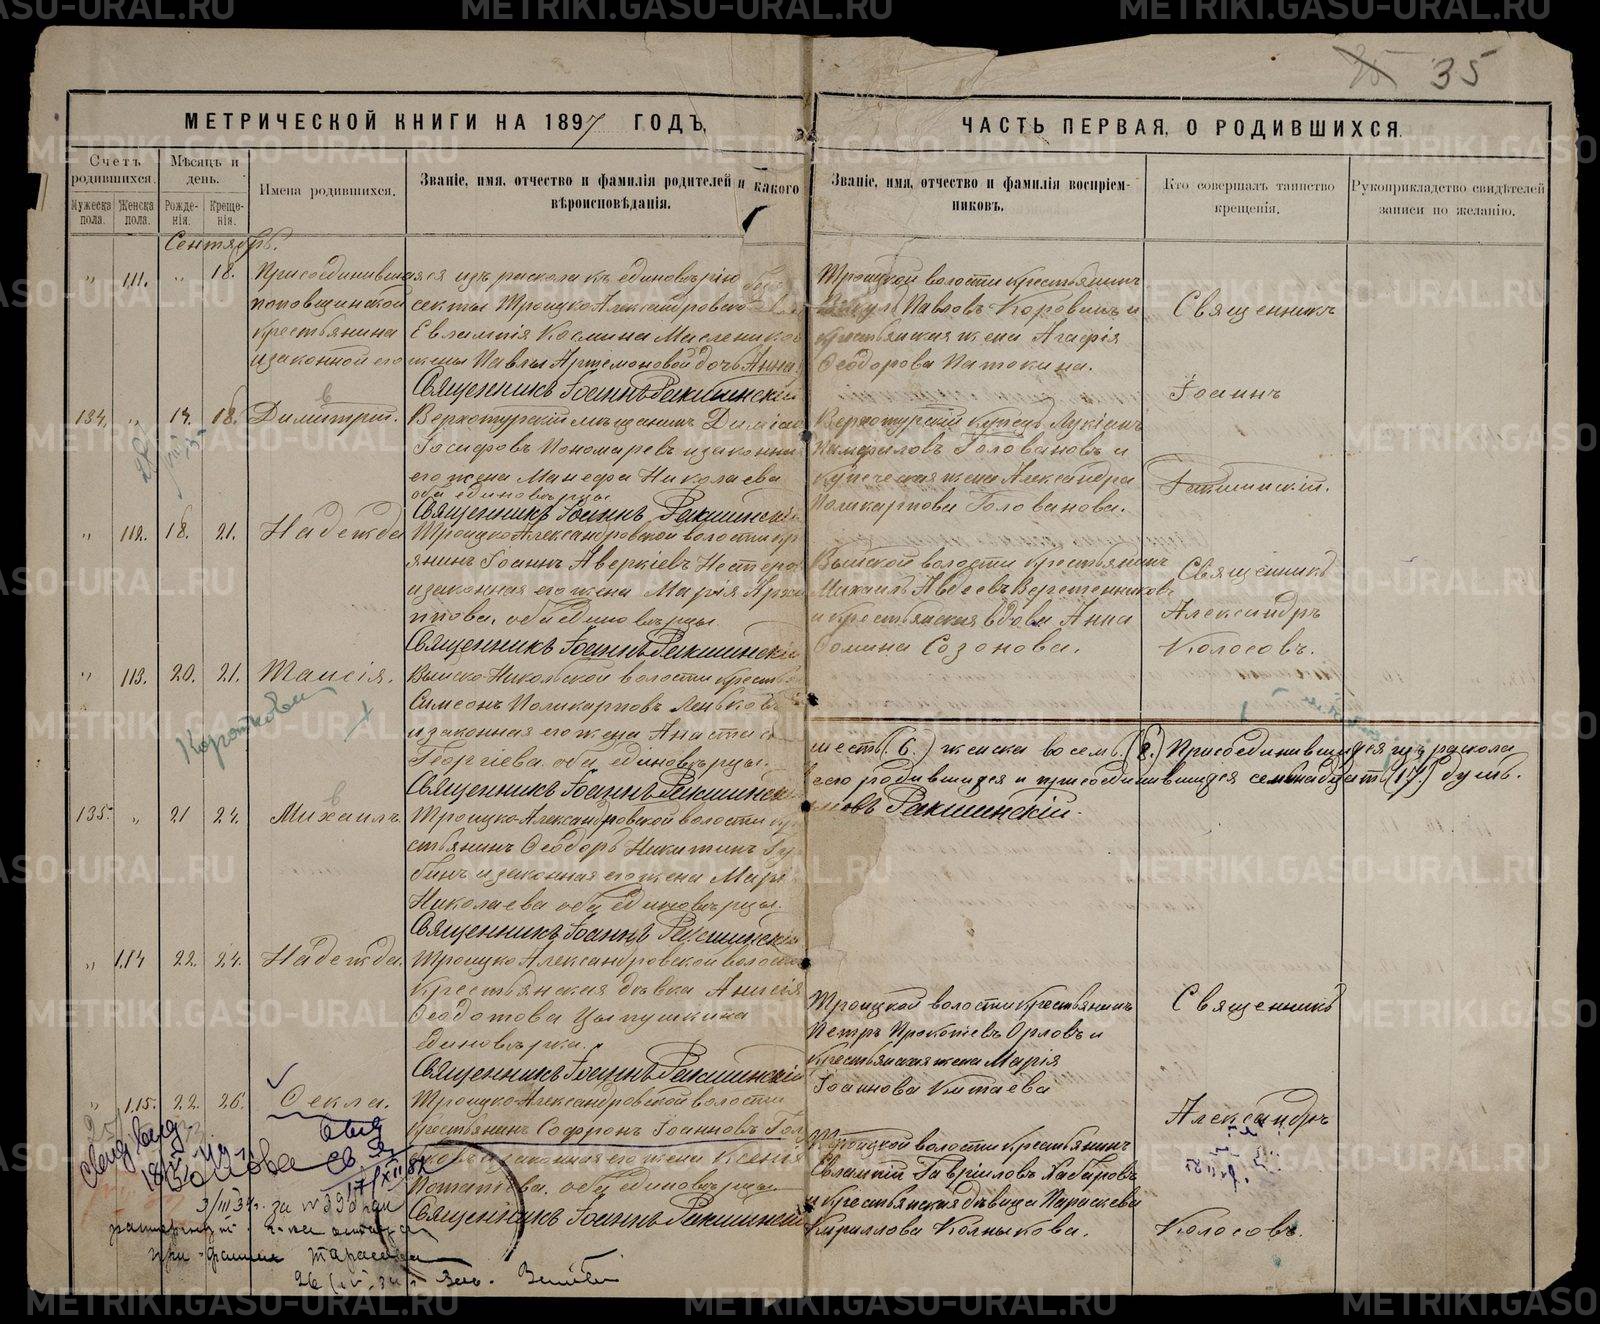 35
МЕТРИЧЕСКОЙ КНИГИ НА 1897 ГОДЪ,
ЧАСТЬ ПЕРВАЯ, О РОДИВШИХСЯ.
Счетъ родившихся.
Мужеска пола.
Женска пола.
Мѣсяцъ и день.
Рожденія.
Крещенія.
Имена родившихся.
Званіе, имя, отчество и фамилія родителей и какого
вѣроисповѣданія.
Званіе, имя, отчество и фамилія воспріем-
никовъ.
Кто совершалъ таинство
крещенія.
Рукоприкладство свидѣтелей
записи по желанію.
Сентябрь.
" 111. " 18. Присоединившаяся изъ раскола къ единовѣрію
поповщинской секты Троицко Александровской
крестьянина Евлампія Космина Масленикова
и законной его жены Павлы Артемоновой дочь Анна
Священникъ Іоаннъ Ракшинскій
Троицкой волости крестьянинъ
Павловъ Коровинъ и
крестьянская жена Агафія
Ѳеодорова Патокина.
Священникъ
Іоаннъ
Ракшинскій.
134. " 14. 18. Димитрій.
Верхотурскій мѣщанинъ
Іосифовъ Пономаревъ и законная
его жена Манефа Николаева
оба единовѣрцы
Священникъ Іоаннъ Ракшинскій
Верхотурскій купецъ Лукіанъ
Памфиловъ Головановъ и
купеческая жена Александра
Поликарпова Голованова.
" 112. 18. 21. Надежда
Троицко Александровской волости кр
янинъ Іоаннъ Аверкіевъ Нестеро
и законная его жена Марія
пова, оба единовѣрцы
Священникъ Іоаннъ Ракшинскій
Выйской волости крестьянинъ
Михаилъ Авдеевъ Веретенниковъ
и крестьянская вдова Анна
Ѳомина Созонова.
Священникъ
Александръ
Колосовъ.
" 113. 20. 21. Таисія.
Выйско-Никольской волости кресть
Симеонъ Поликарповъ Леньковъ
и законная его жена Анастасія
Георгіева оба единовѣрцы.
Священникъ Іоаннъ Ракшинскій
шесть (6.) женска восемь (8.) Присоединившихся изъ раскола
всего родившихся и присоединившихся семнадцать (17.) душъ.
Ракшинскій.
135. " 21 24. Михаилъ
Троицко Александровской волости кр
стьянинъ Ѳеодоръ Никитинъ Гу
бинъ и законная его жена Марія
Николаева оба единовѣрцы.
Священникъ Іоаннъ Ракшинскій
" 114 22. 24. Надежда.
Троицко Александровской волости
крестьянская дѣвка Анисія
Ѳеодотова Цыпушкина
единовѣрка.
Священникъ Іоаннъ Ракшинскій
Троицкой волости крестьянинъ
Петръ Прокопіевъ Орловъ и
крестьянская жена Марія
Іоаннова Китаева
Священникъ
Александръ
Колосовъ.
" 115. 22. 26. Ѳекла.
Троицко Александровской волости
крестьянинъ Софронъ Іоанновъ Гол
и законная его жена Ксенія
Потапова. оба единовѣрцы
Священникъ Іоаннъ Ракшинскій
Троицкой волости крестьянинъ
Евлампій Гавріиловъ Хабаровъ
и крестьянская дѣвица Параскева
Кириллова Колпыкова.
17/XII 82
3/III 34г. за № 39
при фамил Тарасова